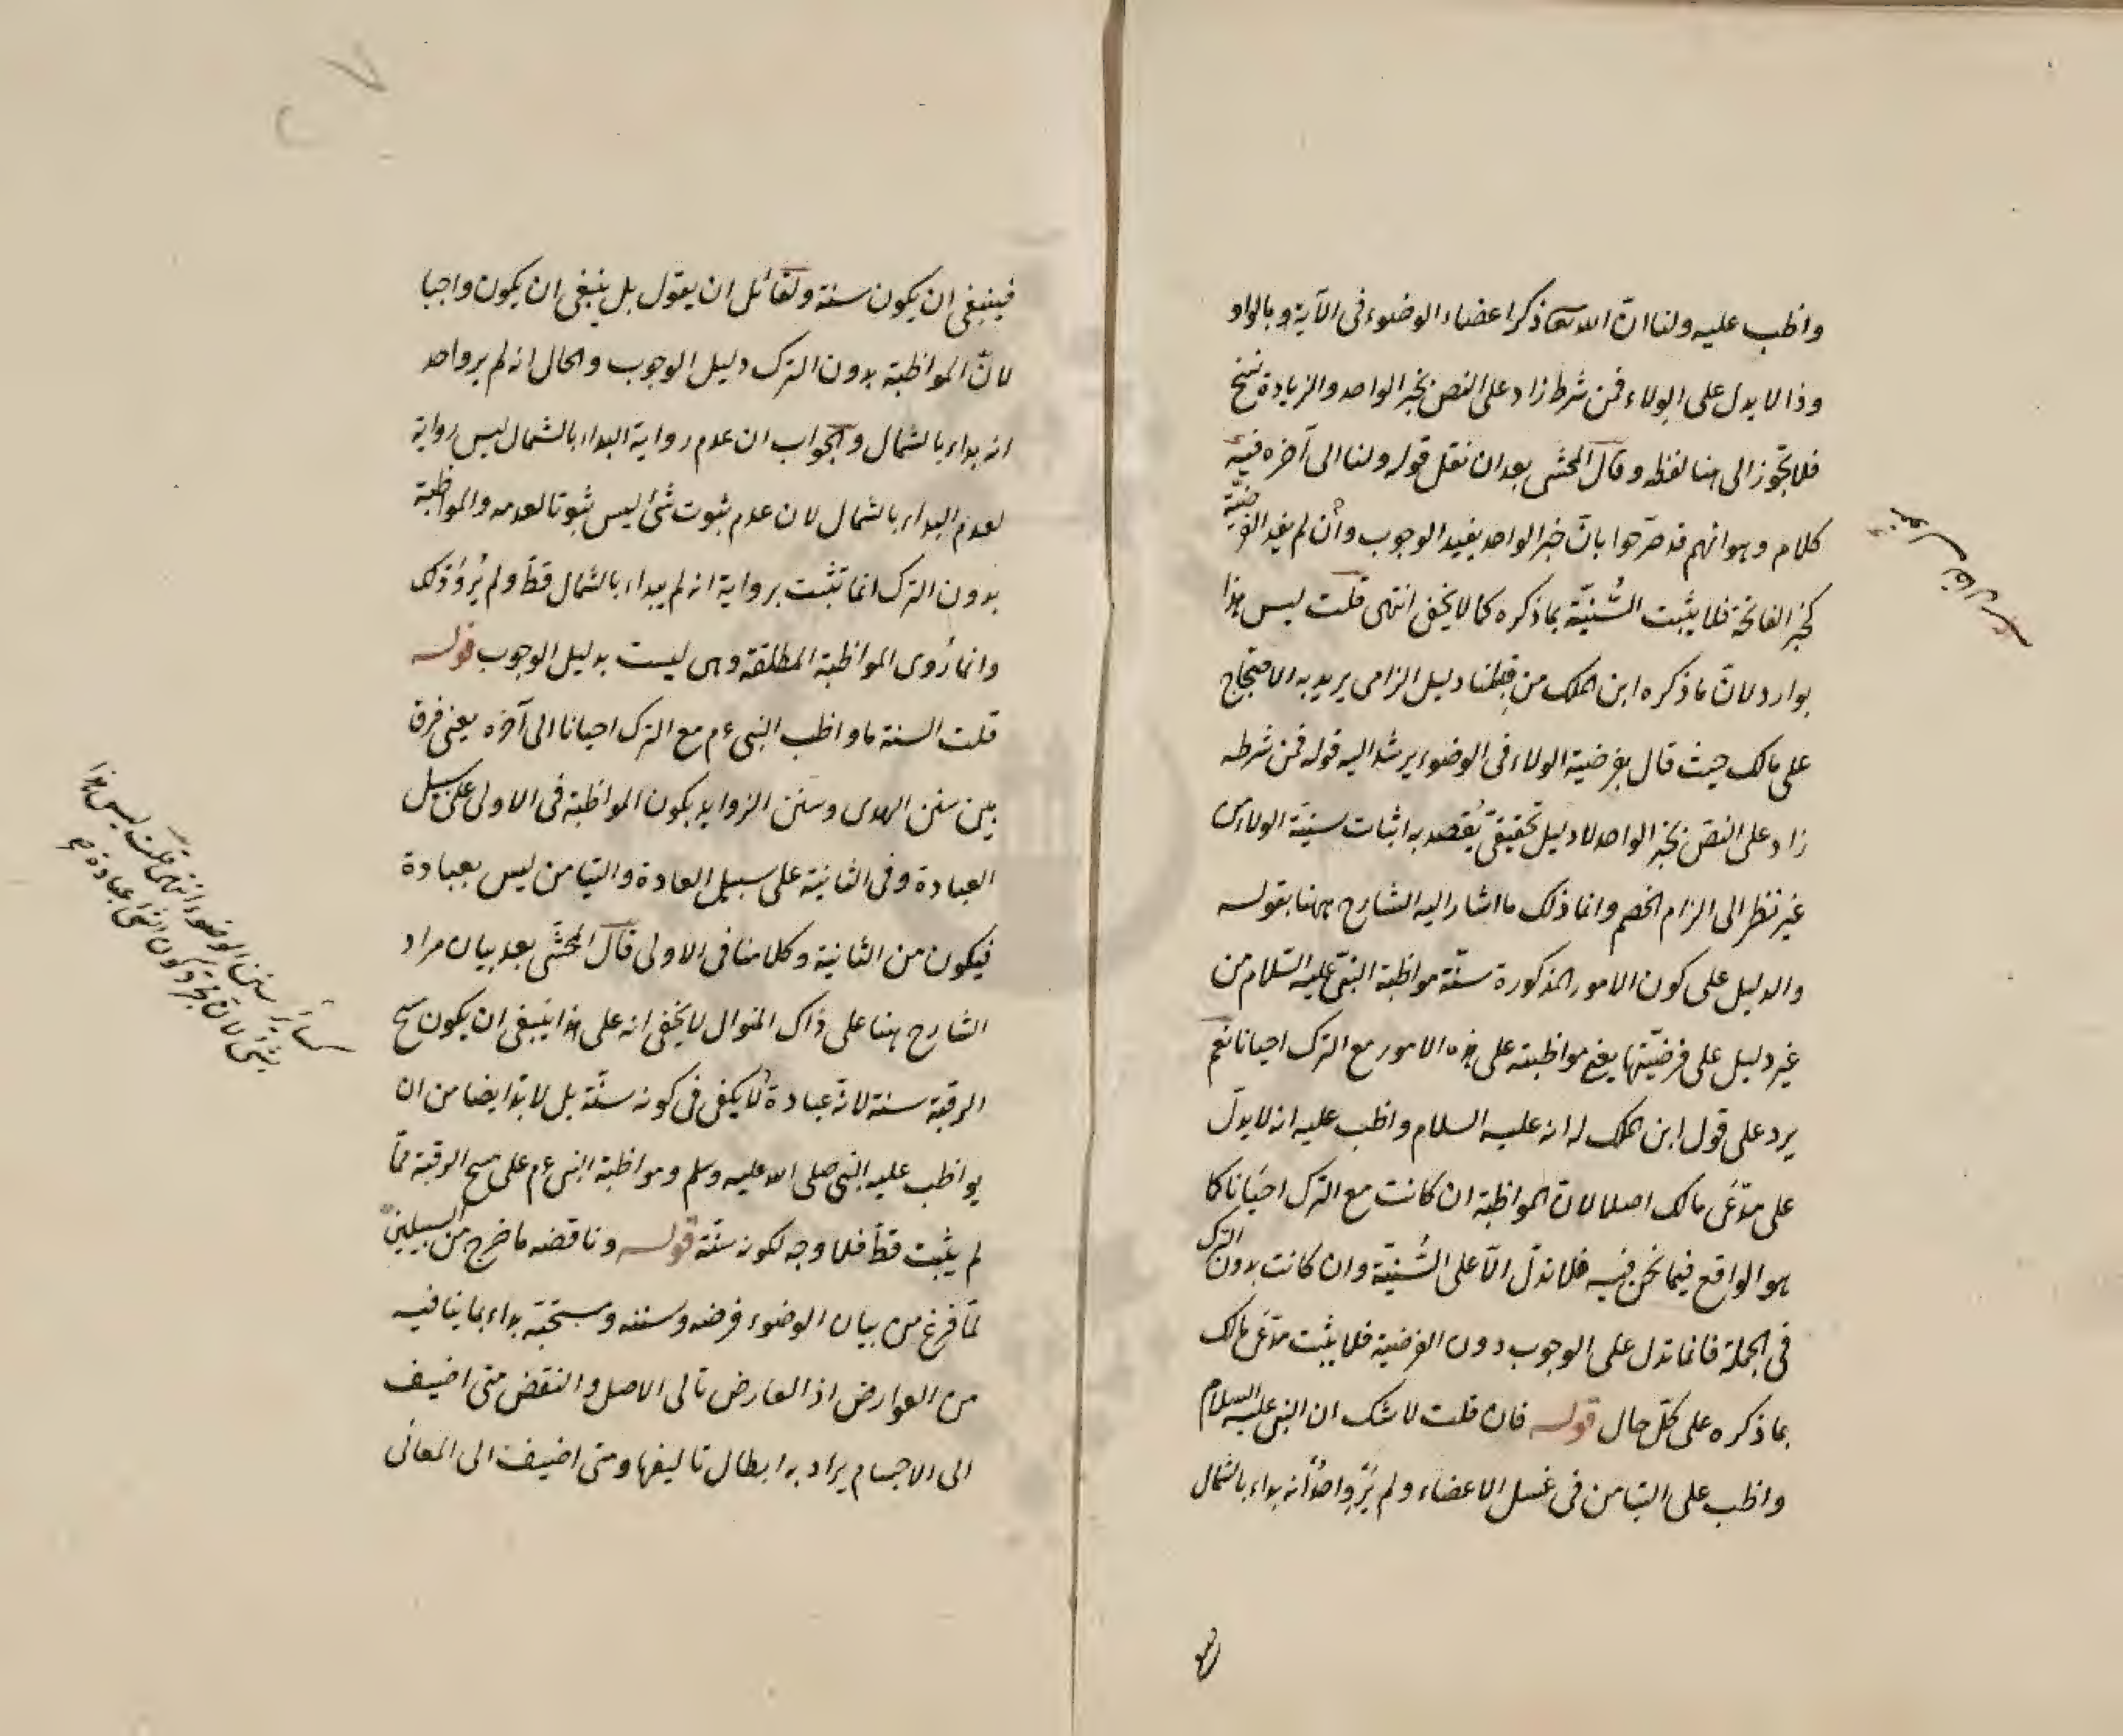 واظب عليه ولنا ان الله تعالى ذكر اعضاء الوضوء فى الآية وبالواو
وذا لا يدل على الولاء فمن شرط زاد على النص بخبر الواحد والزيادة نسخ
فلا تجوز الى هنا لفظه وقال المحشى بعد ان نقل قوله ولنا الى آخره فيه
كلام وهو انهم قد صرّحوا بانّ خبر الواحد يفيد الوجوب وان لم يفد الفرضيّة
كخبر الفاتحة فلا يثبت السُّنيّة بما ذكره كما لا يخفى انتهى قلت ليس هذا
بوارد لانّ ما ذكره ابن الملك من قِبلنا دليل الزامى يريد به الاحتجاج
على مالك حيث قال بفرضية الولاء فى الوضوء يرشد اليه قوله فمن شرطه
زاد على النصّ بخبر الواحد لا دليل تحقيقىّ يُقصد به اثبات سنيّة الولاء من
غير نظر الى الزام الخصم وانما ذلك ما اشار اليه الشارح ههنا بقوله
والدليل على كون الامور المذكورة سنّة مواظبة النبىّ عليه السّلام من
غير دليل على فرضيّتها يعنى مواظبته على هذه الامور مع الترك احيانا نعم
يرد على قول ابن الملك له انه عليه السلام واظب عليه انه لا يدلّ
على مدّعى مالك اصلا لانّ المواظبة ان كانت مع الترك احيانا كما
هو الواقع فيما نحن فيه فلا تدلّ الّا على السُّنيّة وان كانت بدون الترك
فى الجملة فانما تدل على الوجوب دون الفرضية فلا يثبت مدّعى مالك
بما ذكره على كلّ حال قوله فان قلت لا شك ان النبى عليه السلام
واظب على التيامن فى غسل الاعضاء ولم يَرْوِ واحدٌ انه بداء بالشمال
فينبغى ان يكون سنة ولقائل ان يقول بل ينبغى ان يكون واجبا
لانّ المواظبة بدون الترك دليل الوجوب والحال انه لم يرو احد
انه بداء بالشمال والجواب ان عدم رواية البداء بالشمال ليس رواية
لعدم البداء بالشمال لان عدم ثبوت شئ ليس ثبوتا لعدمه والمواظبة
بدون الترك انما تثبت برواية انه لم يبداء بالشمال قطّ ولم يُرْوَ ذلك
وانما رُوى المواظبة المطلقة وهى ليست بدليل الوجوب قوله
قلت السنة ما واظب النبى ءم مع الترك احيانا الى آخره يعنى فرق
بين سنن الهدى وسنن الزوايد بكون المواظبة فى الاولى على سبيل
العبادة وفى الثانية على سبيل العادة والتيامن ليس بعبادة
فيكون من الثانية وكلامنا فى الاولى قال المحشّى بعد بيان مراد
الشارح هنا على ذاك المنوال لا يخفى انه على هذا ينبغى ان يكون مسح
الرقبة سنة لانه عبادة لا يكفى فى كونه سنّة بل لا بدّ ايضا من ان
يواظب عليه النبى صلى الله عليه وسلم ومواظبة النبى ءم على مسح الرقبة ممّا
لم يثبت قطّ فلا وجه لكونه سنّة قوله وناقضه ما خرج من السبيلين
لمّا فرغ من بيان الوضوء فرضه وسننه ومستحبّه بداء بما ينافيه
من العوارض اذ العارض تالى الاصل والنقض متى اضيف
الى الاجسام يراد به ابطال تاليفها ومتى اضيف الى المعانى
سائر سنن الوضوء انتهى قلت ليس هذا
بشئ لان مجرد كون الشئ عبادة صح